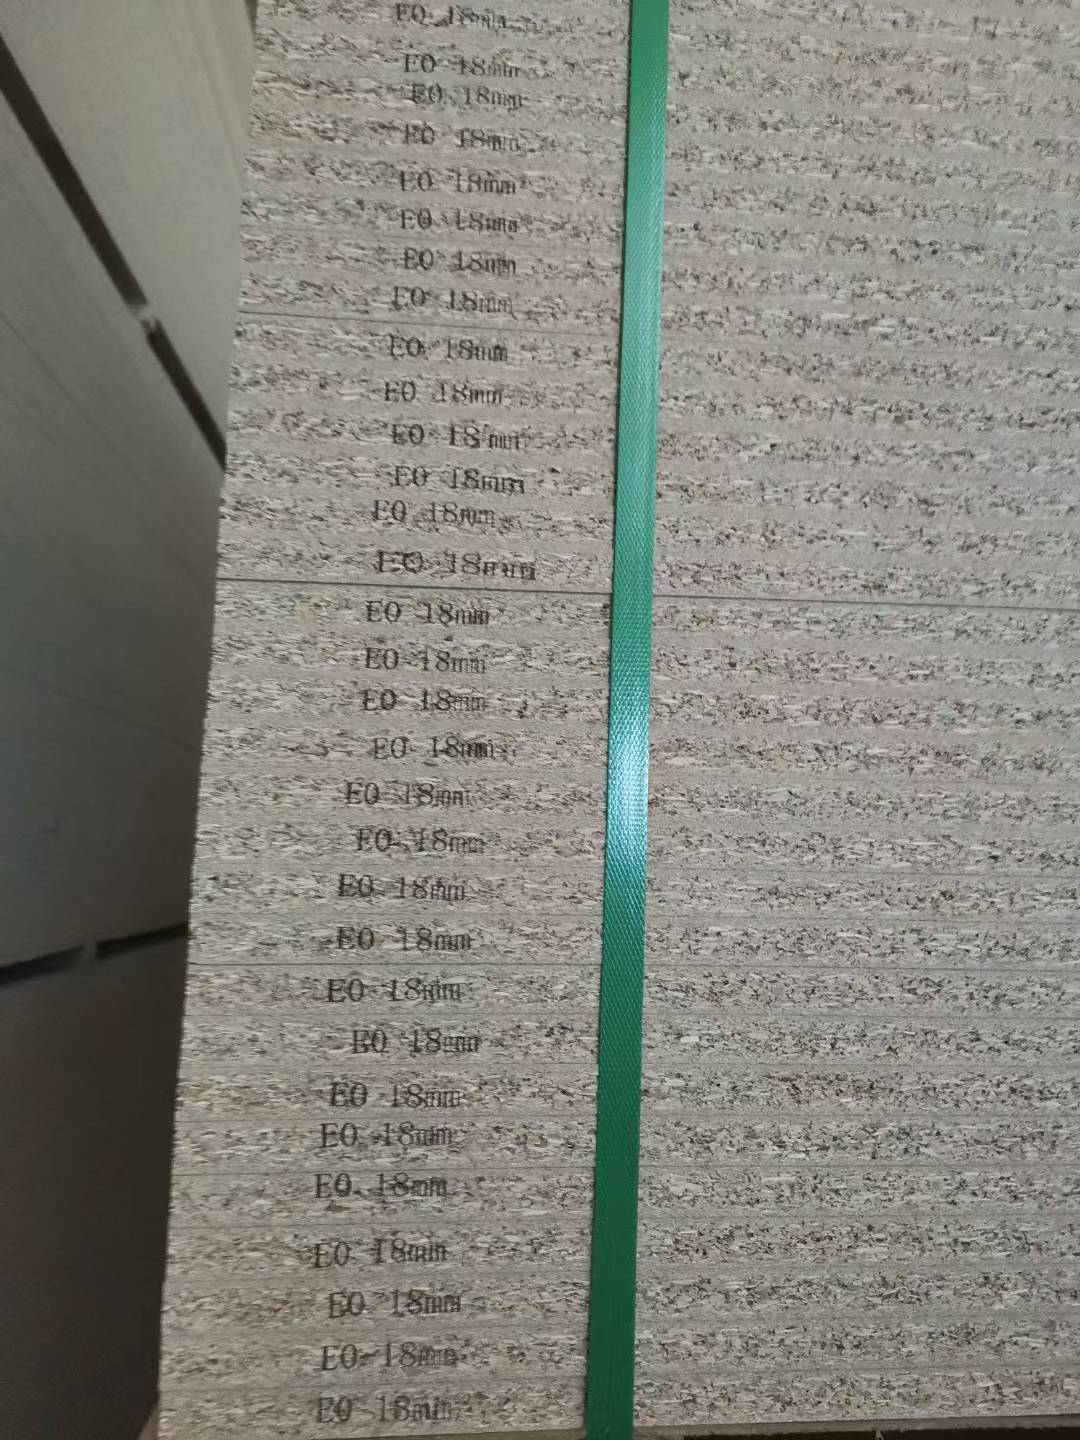 E0 18mm
E0 18mm
E0 18mm
E0 18mm
E0 18mm
E0 18mm
E0 18mm
E0 18mm
E0 18mm
E0 18mm
E0 18mm
E0 18mm
E0 18mm
E0 18mm
E0 18mm
E0 18mm
E0 18mm
E0 18mm
E0 18mm
E0 18mm
E0 18mm
E0 18mm
E0 18mm
E0 18mm
E0 18mm
E0 18mm
E0 18mm
E0 18mm
E0 18mm
E0 18mm
E0 18mm